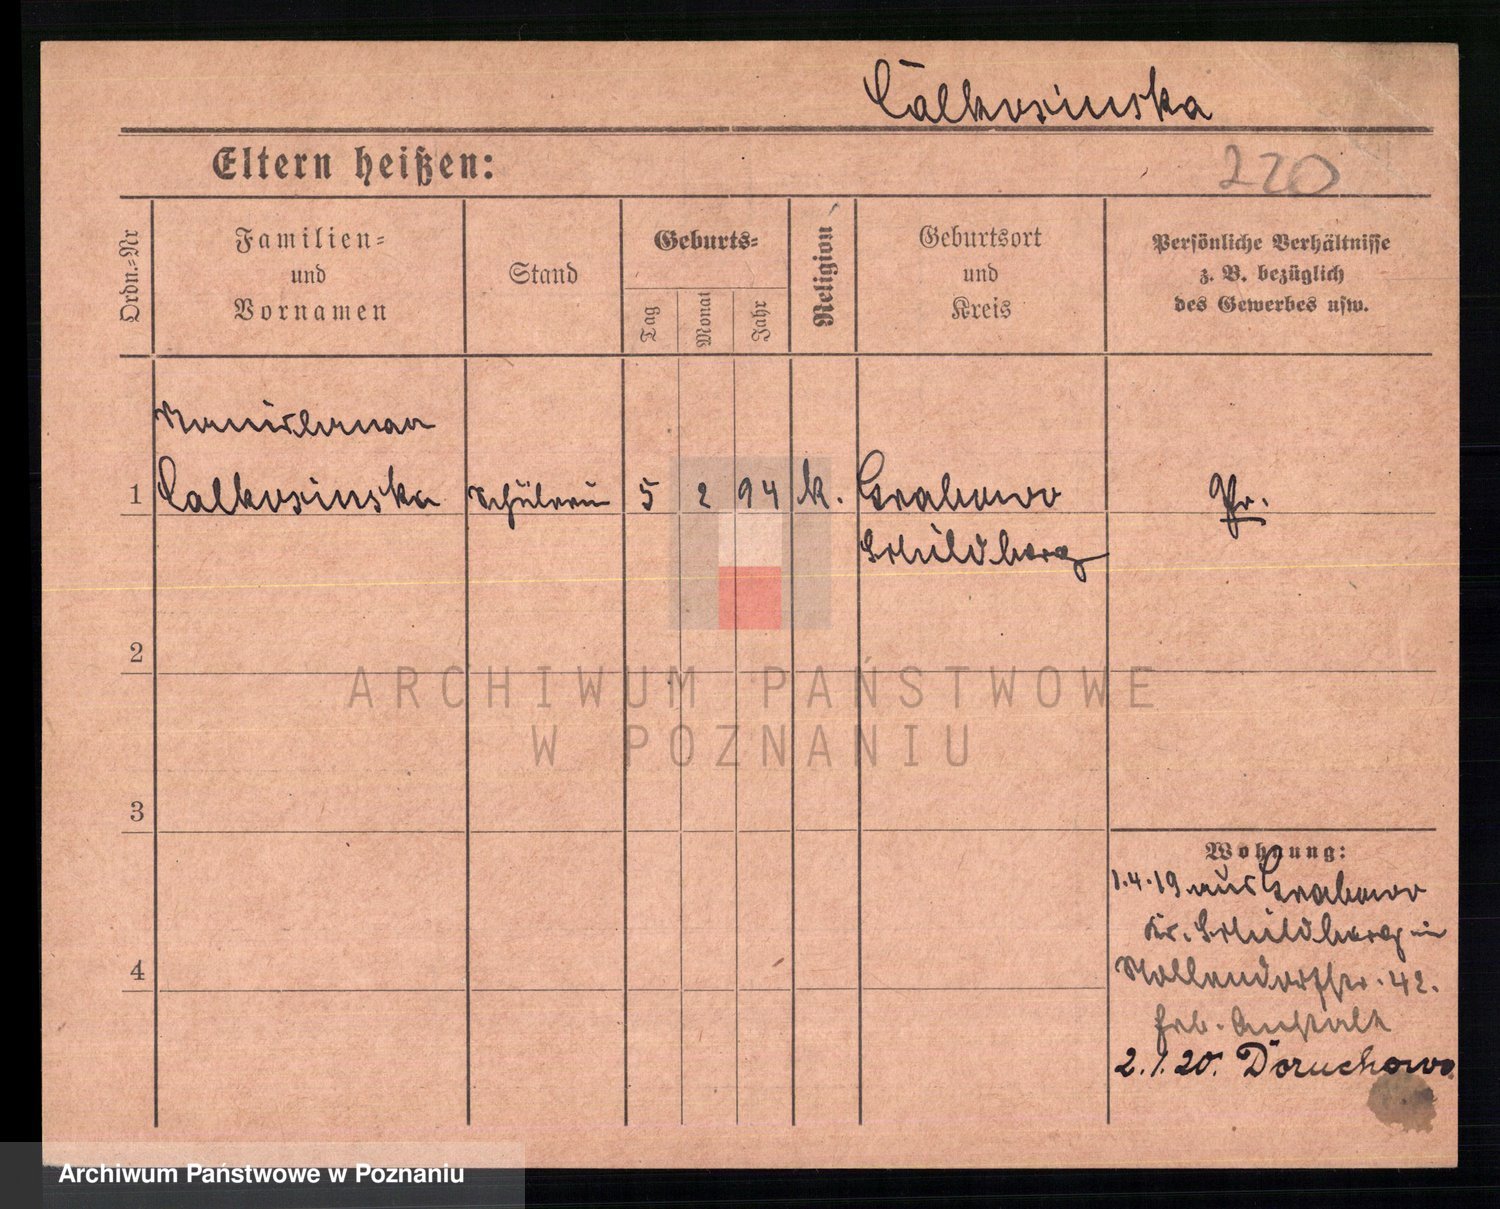 Calkosinska
Eltern heißen:
220
Ordn.-Nr
Familien-
und
Vornamen
Stand
Geburts-
Tag
Monat
Jahr
Religion
Geburtsort
und
Kreis
Persönliche Verhältnisse
z. B. bezüglich
des Gewerbes usw.
Stanislawa
1 Calkosinska Schülerin 5 2 94 k. Grabowo Pr.
Schildberg
2
ARCHIWUM PAŃSTWOWE
W POZNANIU
3
Wohnung:
1.4.19 aus Grabowo
Kr. Schildberg in
4
42.
Anstalt
2.1.20. Doruchowo
Archiwum Państwowe w Poznaniu